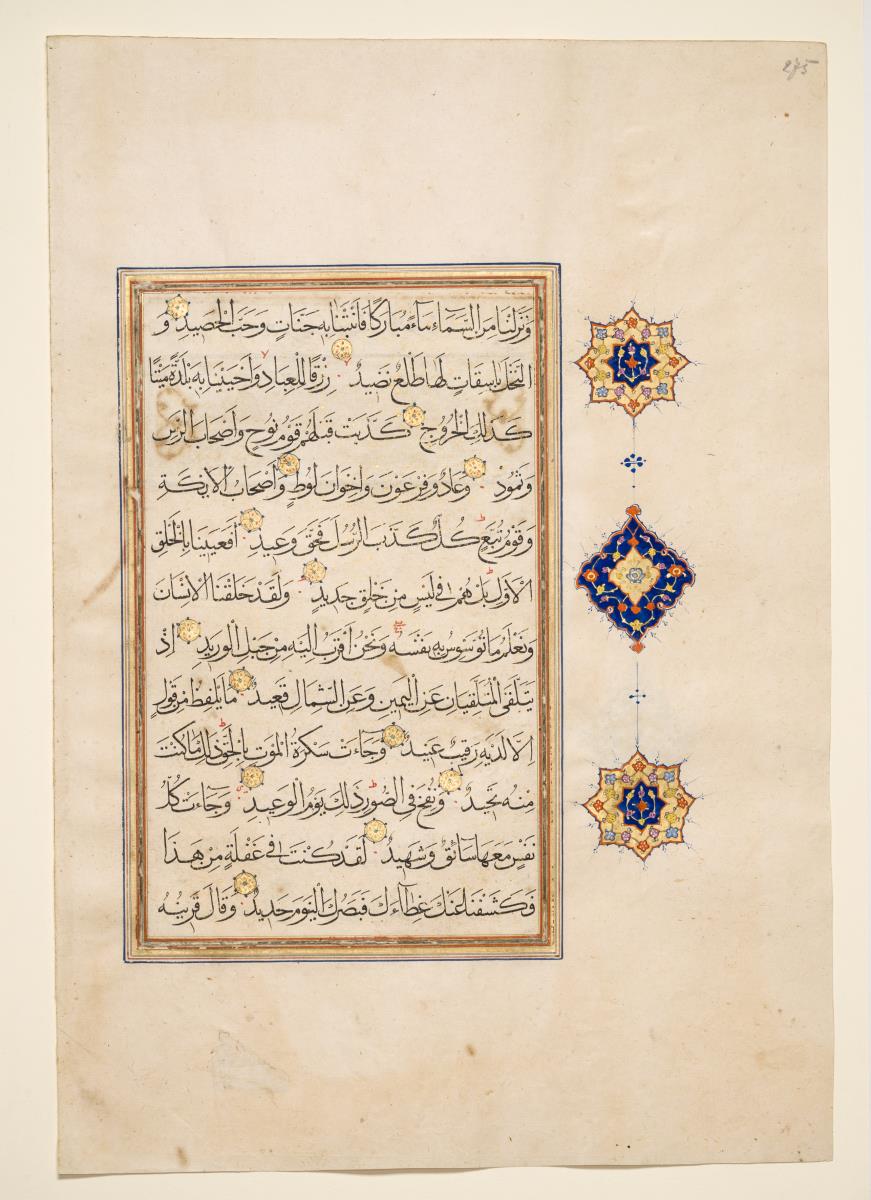 275
وَنَزَّلْنَا مِنَ السَّمَاءِ مَاءً مُبَارَكًا فَأَنْبَتْنَا بِهِ جَنَّاتٍ وَحَبَّ الْحَصِيدِ وَ
النَّخْلَ بَاسِقَاتٍ لَهَا طَلْعٌ نَضِيدٌ رِزْقًا لِلْعِبَادِ وَأَحْيَيْنَا بِهِ بَلْدَةً مَيْتًا
كَذَلِكَ الْخُرُوجُ كَذَّبَتْ قَبْلَهُمْ قَوْمُ نُوحٍ وَأَصْحَابُ الرَّسِّ
وَثَمُودُ وَعَادٌ وَفِرْعَوْنُ وَإِخْوَانُ لُوطٍ وَأَصْحَابُ الْأَيْكَةِ
وَقَوْمُ تُبَّعٍ كُلٌّ كَذَّبَ الرُّسُلَ فَحَقَّ وَعِيدِ أَفَعَيِينَا بِالْخَلْقِ
الْأَوَّلِ بَلْ هُمْ فِي لَبْسٍ مِنْ خَلْقٍ جَدِيدٍ وَلَقَدْ خَلَقْنَا الْإِنْسَانَ
وَنَعْلَمُ مَا تُوَسْوِسُ بِهِ نَفْسُهُ وَنَحْنُ أَقْرَبُ إِلَيْهِ مِنْ حَبْلِ الْوَرِيدِ إِذْ
يَتَلَقَّى الْمُتَلَقِّيَانِ عَنِ الْيَمِينِ وَعَنِ الشِّمَالِ قَعِيدٌ مَا يَلْفِظُ مِنْ قَوْلٍ
إِلَّا لَدَيْهِ رَقِيبٌ عَتِيدٌ وَجَاءَتْ سَكْرَةُ الْمَوْتِ بِالْحَقِّ ذَلِكَ مَا كُنْتَ
مِنْهُ تَحِيدُ وَنُفِخَ فِي الصُّورِ ذَلِكَ يَوْمُ الْوَعِيدِ وَجَاءَتْ كُلُّ
نَفْسٍ مَعَهَا سَائِقٌ وَشَهِيدٌ لَقَدْ كُنْتَ فِي غَفْلَةٍ مِنْ هَذَا
فَكَشَفْنَا عَنْكَ غِطَاءَكَ فَبَصَرُكَ الْيَوْمَ حَدِيدٌ وَقَالَ قَرِينُهُ